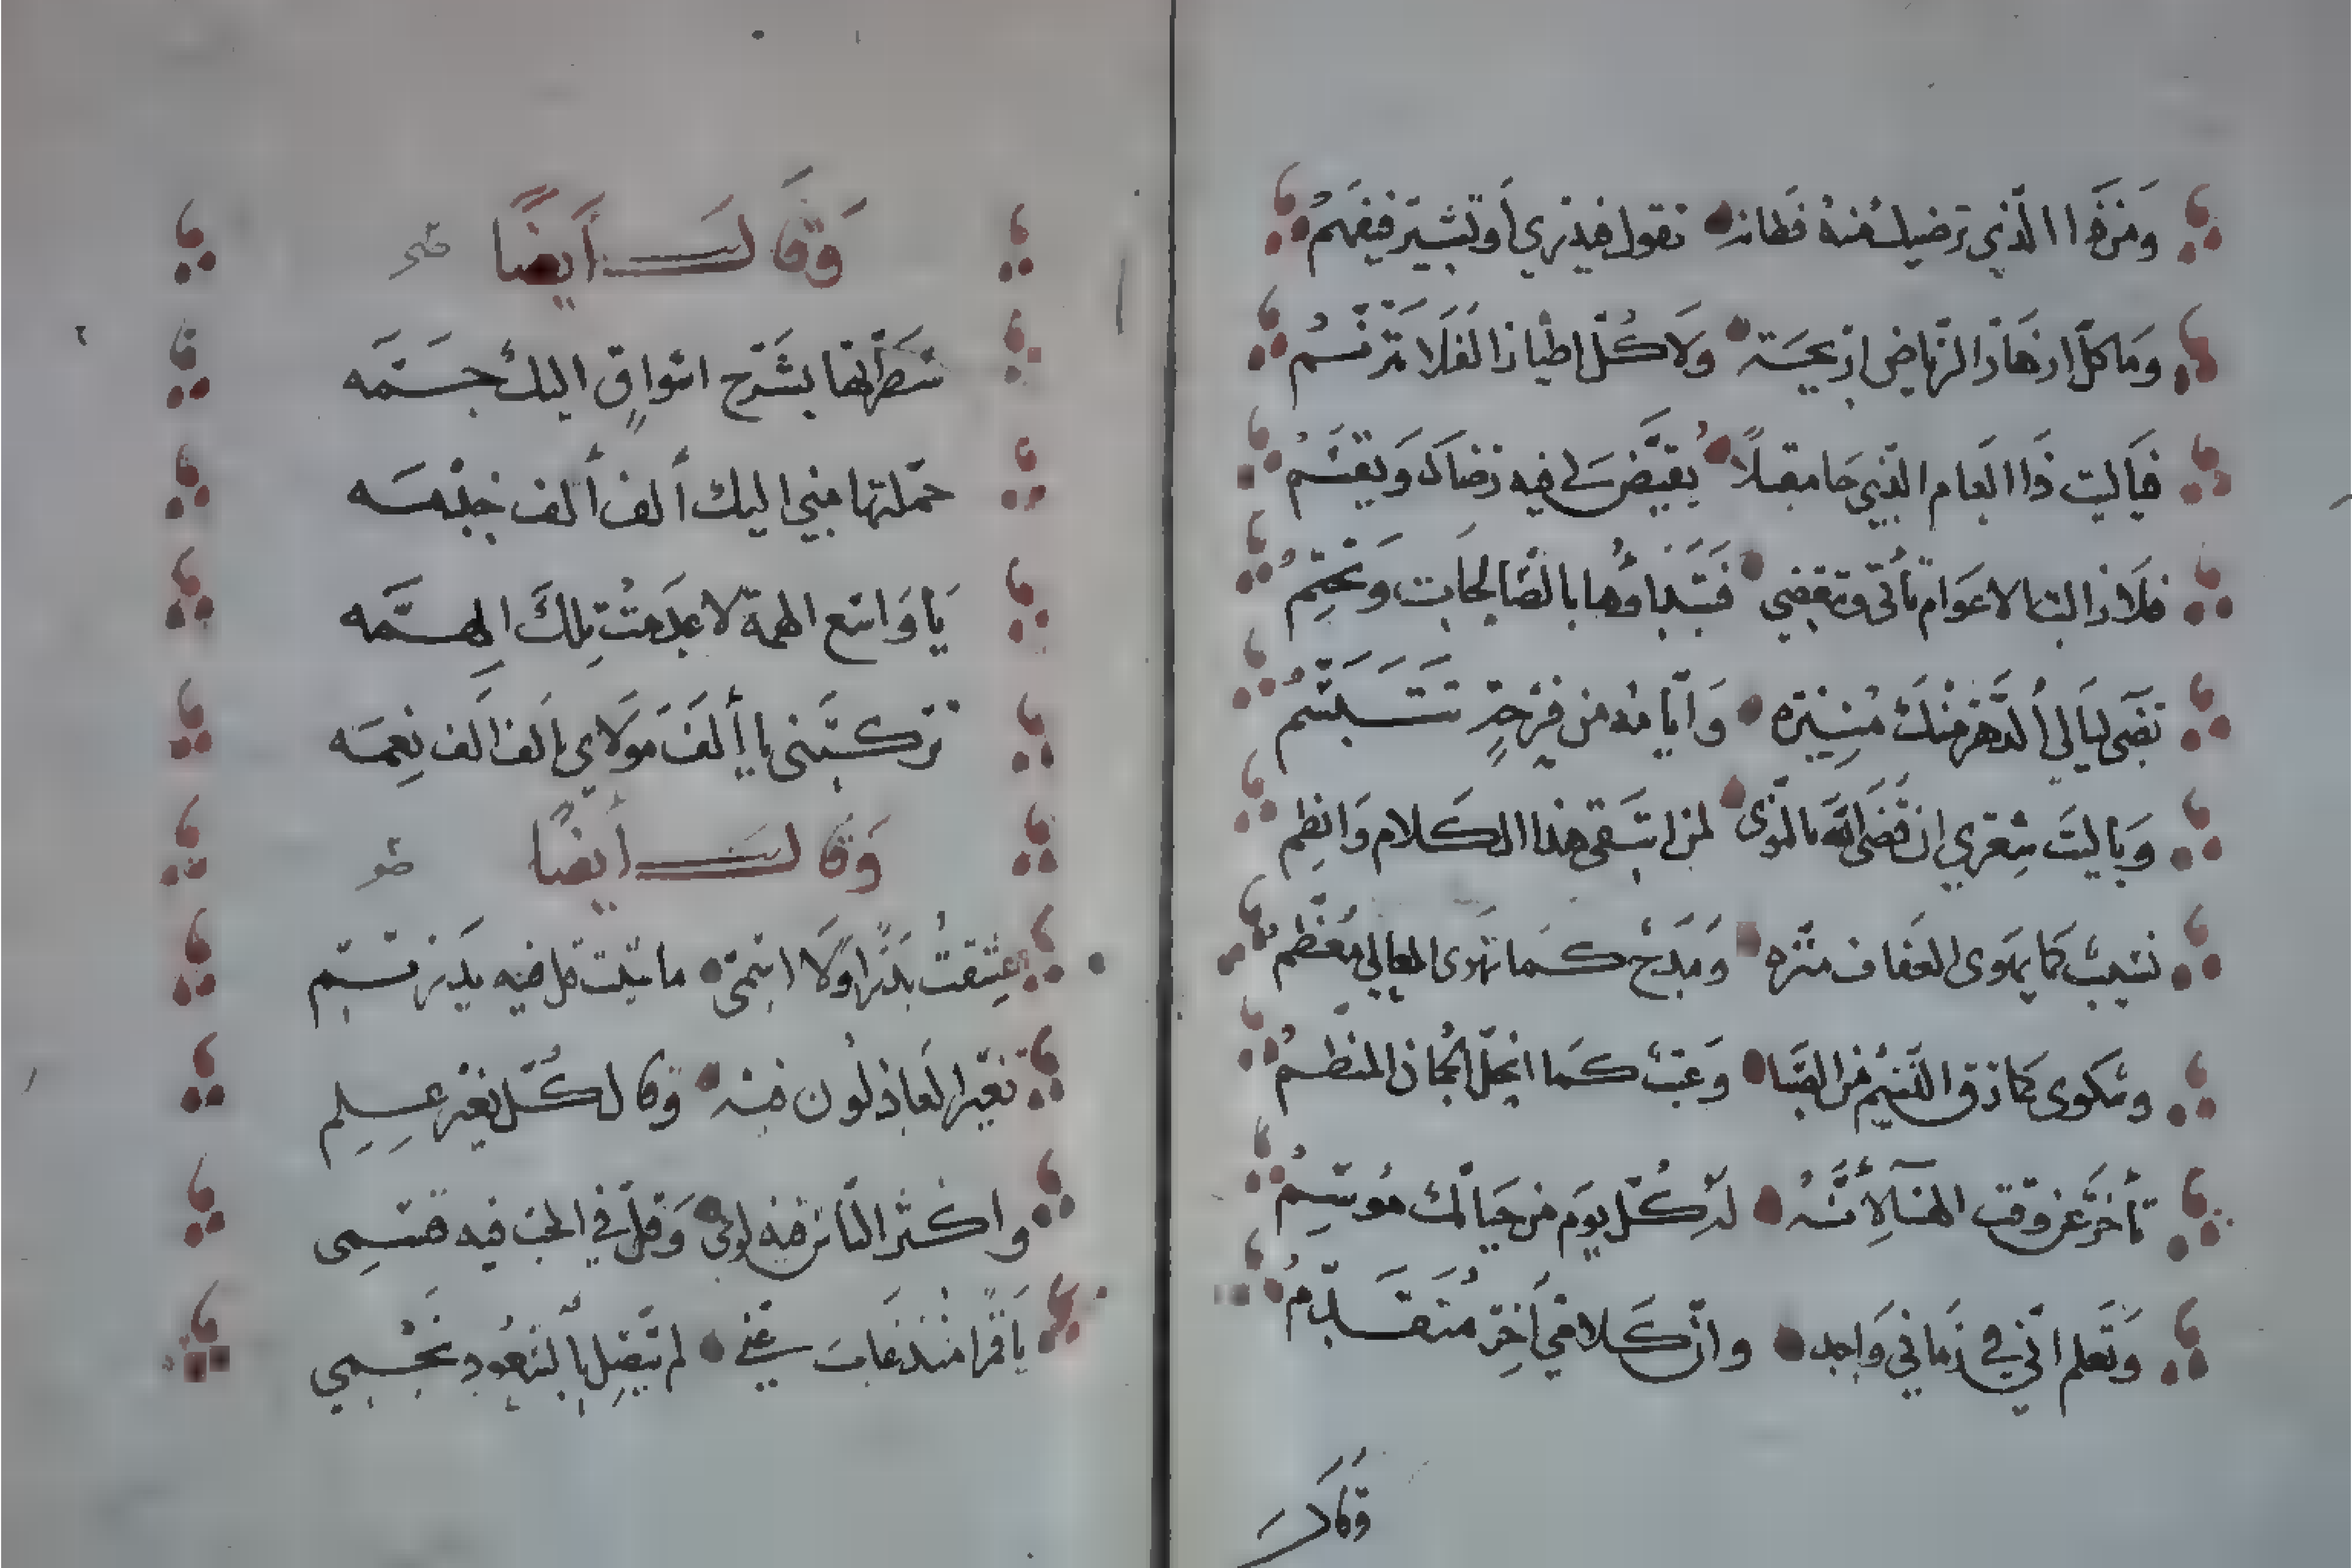 وَمَن ذَا الَّذِي تُرضِيكَ مِنهُ فَطَانَةٌ تَقول فيدري أَو تُشِيرُ فيفهَمُ
وَمَا كلّ ازهَار الرّيَاضِ اريجَة وَلَا كُلّ اطيار الفَلَا تَتَرَنّمُ
فيَاليت ذَا العَام الّذِي جَا مقبلًا يقيّض لي فيه رضَاك وَيقسَمُ
فلَا زالت الاعوَام تَأتي وتنقضي فَتَبدَاؤُها بالصّالِحَات وَتَختِمُ
تقضّى لَيَالِي الدَّهرِ مِنكَ مُنِيرَة وَأيّامُه من فَرْحَةٍ تَتَبَسَّمُ
وَيا ليتَ شِعْرِي ان قَضَى اللهُ بالنّوى لمن ابتَقى هذا الكَلام وَانظِم
نسيبٌ كمَا يهوَى العَفاف منزّه وَمَدحٌ كَما تَهوَى المعَالي مُعَظّمُ
وشكوى كمَا رَقّ النّسيمُ من الصَّبَا وَعَتبٌ كَما انحلّ الجُمان المنظّمُ
تأخّرَ عَن وَقت الهنَآ لِأَنَّهُ لَهُ كُلّ يَوم من حيَاتك مُوسِمُ
وَتَعلم انّي في زَمَاني وَاحِد وانّ كَلَامي آخِرٌ مُتَقَدّمُ
وَقالَ
وَقالَ أَيضًا
سَطَرتها بشَرح اشواقٍ اليك جَمَّه
حمّلتها منّي اليك ألف أَلف خِدْمَه
يَا وَاسِع الهمة لا عَدِمتُ تِلكَ الهِمَّه
تركتَني يا ألفَ مَولَاي بألف ألف نِعمَه
وَقالَ أيضًا
عَشِقتُ بَدرًا وَلَا اسمّي ما شئت قل فيه بَدر تمّ
تعيّر العَاذلُون منه وَقالَ كُلٌّ بغيْر عِلم
وَاكثر النّاس فيه لومي وَقلّ في الحبّ فيه قسمِي
يَا قمَرًا مُنذ غَابَ عَنّي لم يَتّصِل بالسّعُودِ نَجْمِي